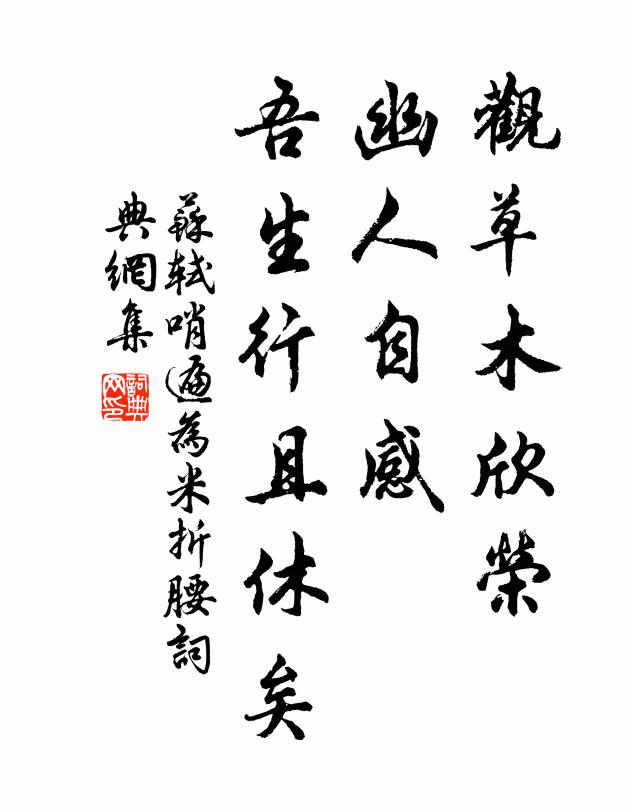 觀草木欣榮
幽人自感
吾生行且休矣
蘇軾哨遍為米折腰詞
典網集
詞典網印